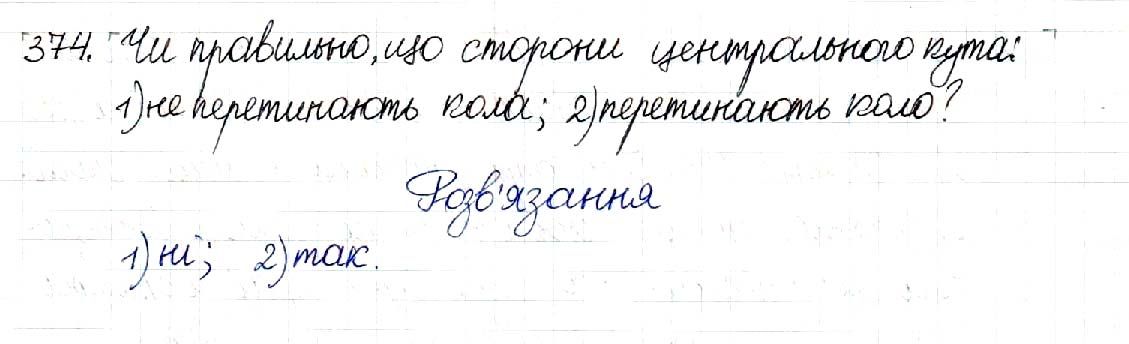 374. Чи правильно, що сторони центрального кута:
1) не перетинають кола; 2) перетинають коло?
Розв'язання
1) ні; 2) так.